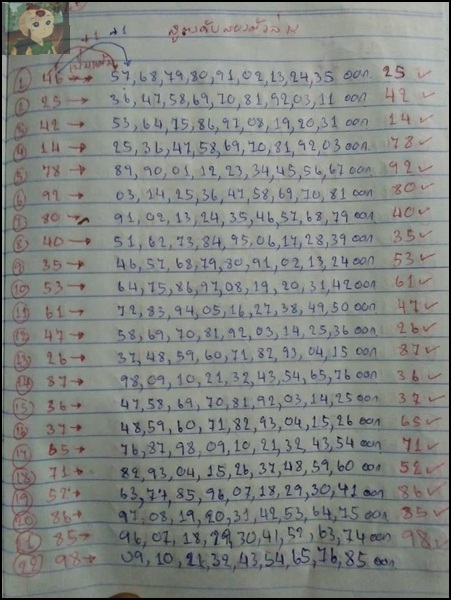 +1 +1
สูตรดับสองตัวล่าง
① 46→ 57,68,79,80,91,02,13,24,35 ออก 25 ✓
② 25→ 36,47,58,69,70,81,92,03,11 ออก 42 ✓
③ 42→ 53,64,75,86,97,08,19,20,31 ออก 14 ✓
④ 14→ 25,36,47,58,69,70,81,92,03 ออก 78 ✓
⑤ 78→ 89,90,01,12,23,34,45,56,67 ออก 92 ✓
⑥ 92→ 03,14,25,36,47,58,69,70,81 ออก 80 ✓
⑦ 80→ 91,02,13,24,35,46,57,68,79 ออก 40 ✓
⑧ 40→ 51,62,73,84,95,06,17,28,39 ออก 35 ✓
⑨ 35→ 46,57,68,79,80,91,02,13,24 ออก 53 ✓
⑩ 53→ 64,75,86,97,08,19,20,31,42 ออก 61 ✓
⑪ 61→ 72,83,94,05,16,27,38,49,50 ออก 47 ✓
⑫ 47→ 58,69,70,81,92,03,14,25,36 ออก 26 ✓
⑬ 26→ 37,48,59,60,71,82,93,04,15 ออก 87 ✓
⑭ 87→ 98,09,10,21,32,43,54,65,76 ออก 36 ✓
⑮ 36→ 47,58,69,70,81,92,03,14,25 ออก 37 ✓
⑯ 37→ 48,59,60,71,82,93,04,15,26 ออก 65 ✓
⑰ 65→ 76,87,98,09,10,21,32,43,54 ออก 71 ✓
⑱ 71→ 82,93,04,15,26,37,48,59,60 ออก 52 ✓
⑲ 52→ 63,74,85,96,07,18,29,30,41 ออก 86 ✓
⑳ 86→ 97,08,19,20,31,42,53,64,75 ออก 85 ✓
㉑ 85→ 96,07,18,29,30,41,52,63,74 ออก 98 ✓
㉒ 98→ 09,10,21,32,43,54,65,76,85 ออก